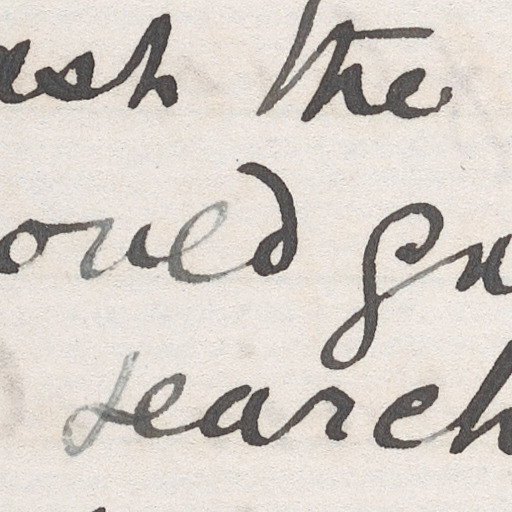 ash the
oued gn
search